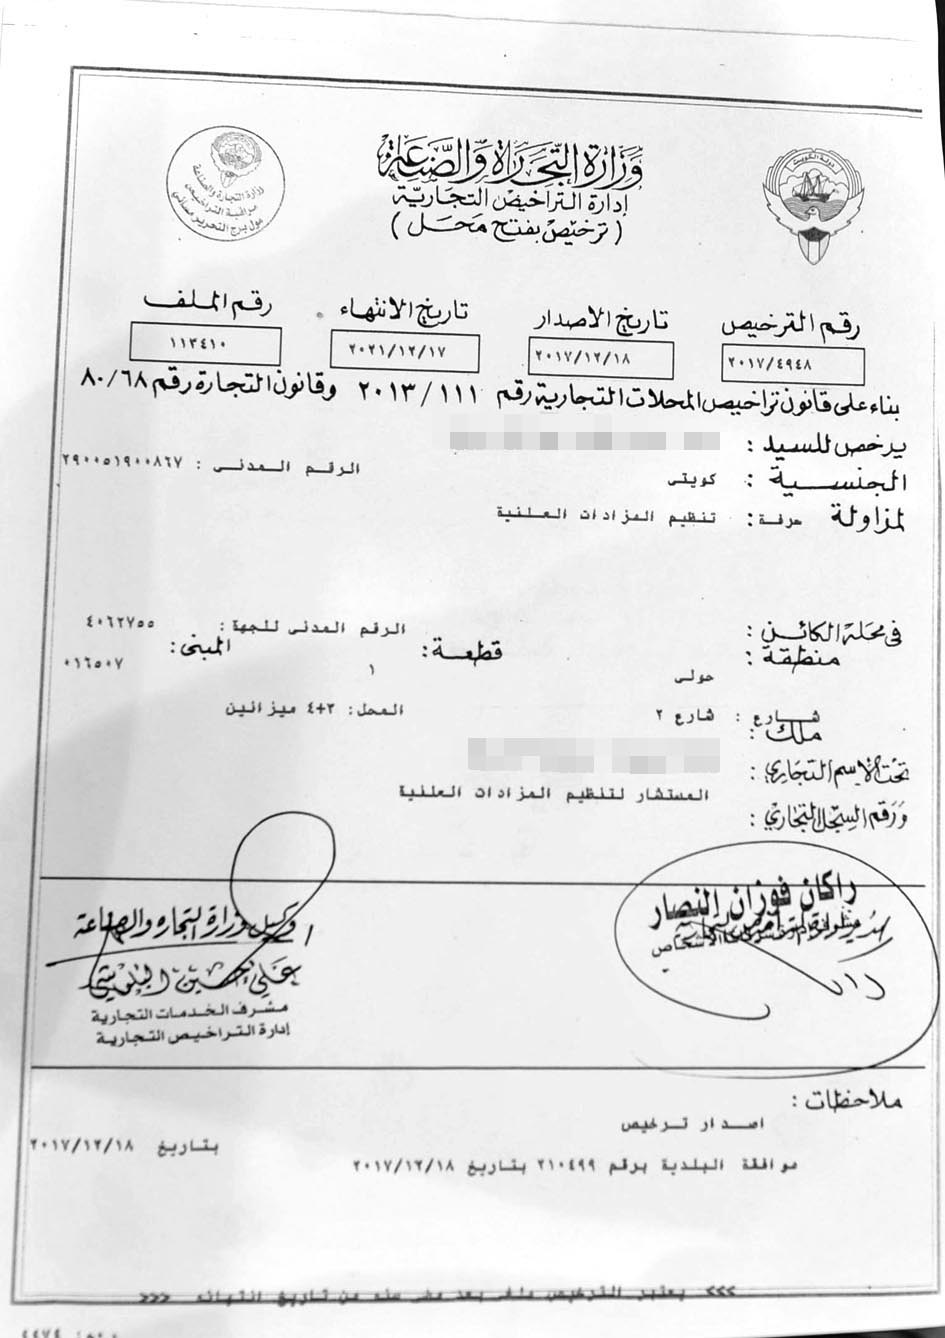 دولة الكويت
وزارة التجارة والصناعة
إدارة التراخيص التجارية
( ترخيص بفتح محل )
وزارة التجارة والصناعة
مراقبة التراخيص
مول برج التحرير
رقم الترخيص تاريخ الاصدار تاريخ الانتهاء رقم الملف
٢٠١٧/٤٩٤٨ ٢٠١٧/١٢/١٨ ٢٠٢١/١٢/١٧ ١١٣٤١٠
بناء على قانون تراخيص المحلات التجارية رقم ١١١ / ٢٠١٣ وقانون التجارة رقم ٨٠/٦٨
يرخص للسيد :
الجنسية : كويتى الرقم المدنى : ٢٩٠٠٥١٩٠٠٨٦٧
لمزاولة حرفة: تنظيم المزادات العلنية
فى محله الكائن : الرقم المدنى للجهة: ٤٠٦٢٧٥٥
منطقة : حولى قطعة: ١ المبنى: ٠١٦٥٠٧
شارع : شارع ٢ المحل: ٣+٤ ميزانين
ملك :
تحت الاسم التجاري :
المستشار لتنظيم المزادات العلنية
ورقم السجل التجاري :
راكان فوزان النصار
وكيل وزارة التجاره والصناعة
علي حسين البلوشي
مشرف الخدمات التجارية
إدارة التراخيص التجارية
ملاحظات :
اصدار ترخيص بتاريخ ٢٠١٧/١٢/١٨
موافقة البلدية برقم ٢١٠٤٩٩ بتاريخ ٢٠١٧/١٢/١٨
<<< يعتبر الترخيص ملغى بعد مضى سنه من تاريخ انتهائه >>>